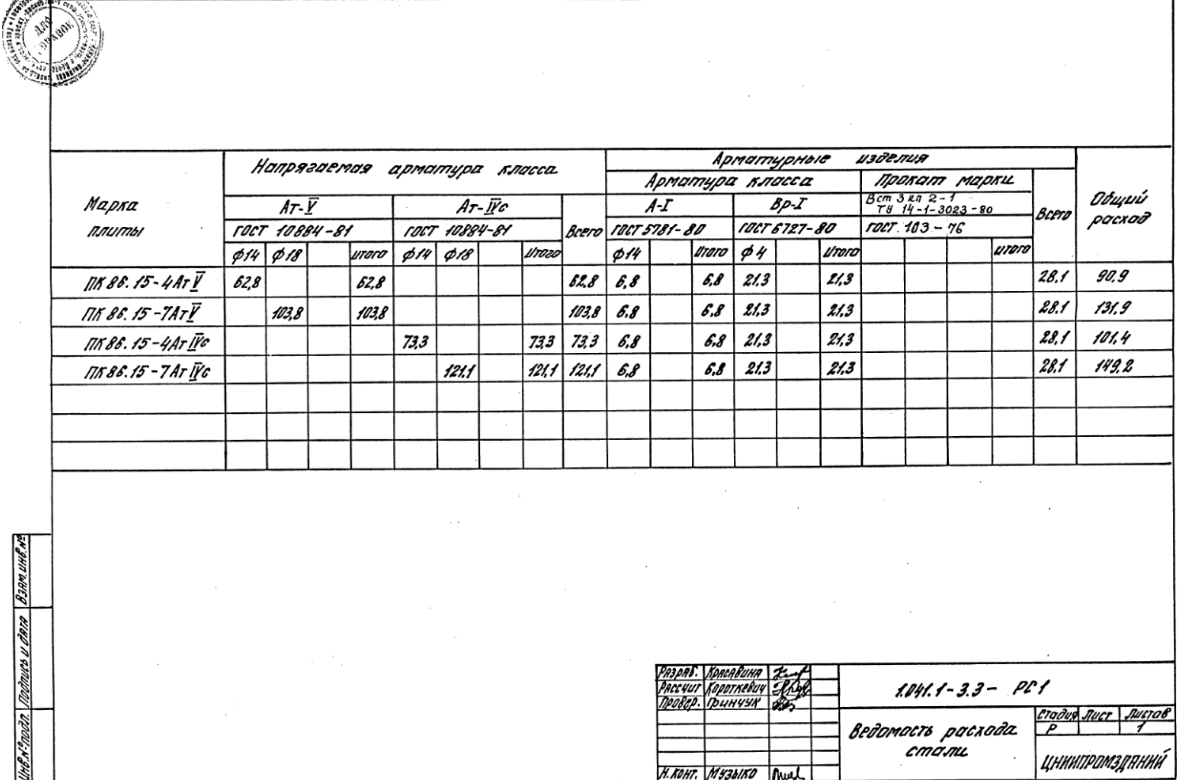 ДЛЯ
Напрягаемая арматура класса
Арматурные изделия
Марка плиты
Арматура класса
Прокат марки
Общий расход
Ат-V
Ат-IVс
Всего
А-I
Вр-I
Вст 3 кп 2-1
ТУ 14-1-3023-80
Всего
ГОСТ 10884-81
ГОСТ 10884-81
ГОСТ 5781-80
ГОСТ 6727-80
ГОСТ. 103-76
ф14 ф18 Итого ф14 ф18 Итого ф14 Итого ф4 Итого Итого
ПК 86.15-4АтV 62,8 62,8 62,8 6,8 6,8 21,3 21,3 28,1 90,9
ПК 86.15-7АтV 103,8 103,8 103,8 6,8 6,8 21,3 21,3 28,1 131,9
ПК 86.15-4АтIVс 73,3 73,3 73,3 6,8 6,8 21,3 21,3 28,1 101,4
ПК 86.15-7АтIVс 121,1 121,1 121,1 6,8 6,8 21,3 21,3 28,1 149,2
Взам.инв.№
Подпись и дата
Инв.№подл.
Разраб. Красавина
Рассчит Короткевич
Провер. Гринчук
Н.конт. Музыко
1.041.1-3.3- РС1
Ведомость расхода
стали
Стадия Лист Листов
Р 1
ЦНИИПРОМЗДАНИЙ